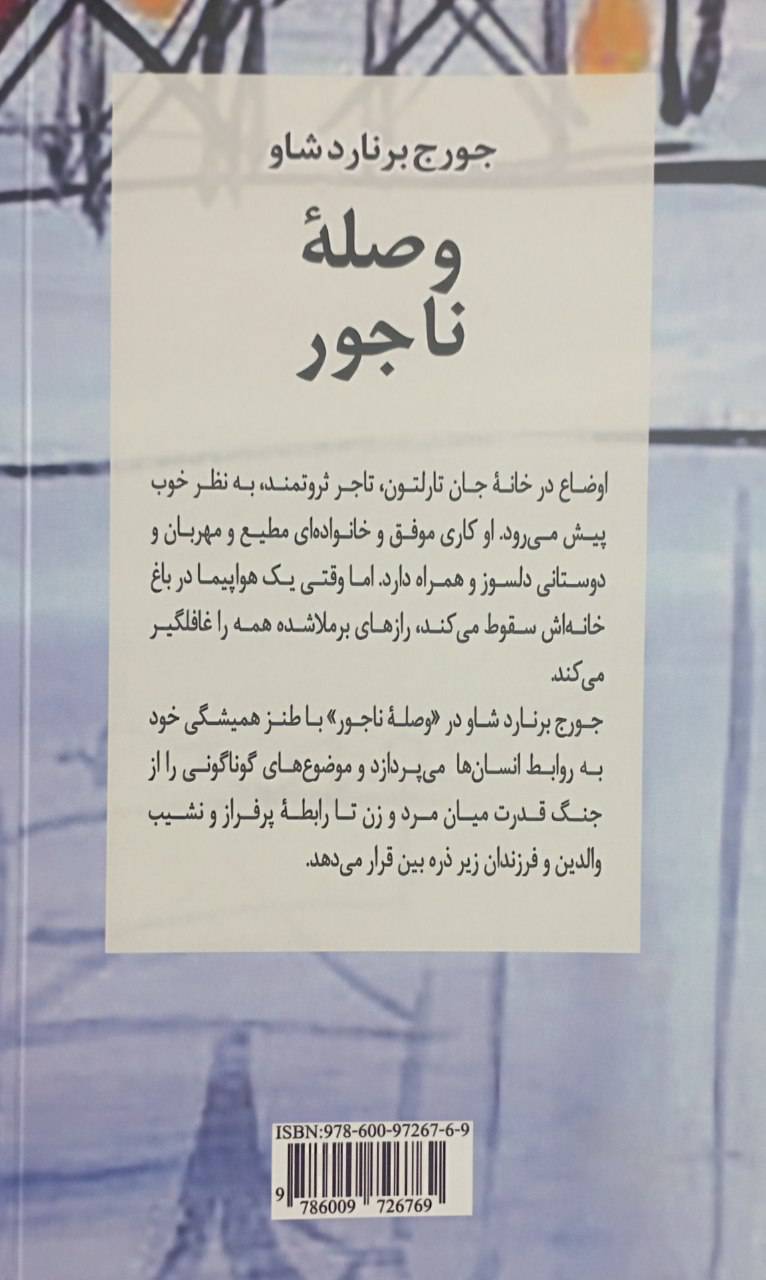 جورج برنارد شاو
وصلهٔ
ناجور
اوضاع در خانهٔ جان تارلتون، تاجر ثروتمند، به نظر خوب
پیش می‌رود. او کاری موفق و خانواده‌ای مطیع و مهربان و
دوستانی دلسوز و همراه دارد. اما وقتی یک هواپیما در باغ
خانه‌اش سقوط می‌کند، رازهای برملاشده همه را غافلگیر
می‌کند.
جورج برنارد شاو در «وصلهٔ ناجور» با طنز همیشگی خود
به روابط انسان‌ها می‌پردازد و موضوع‌های گوناگونی را از
جنگ قدرت میان مرد و زن تا رابطهٔ پرفراز و نشیب
والدین و فرزندان زیر ذره بین قرار می‌دهد.
ISBN:978-600-97267-6-9
9 786009 726769